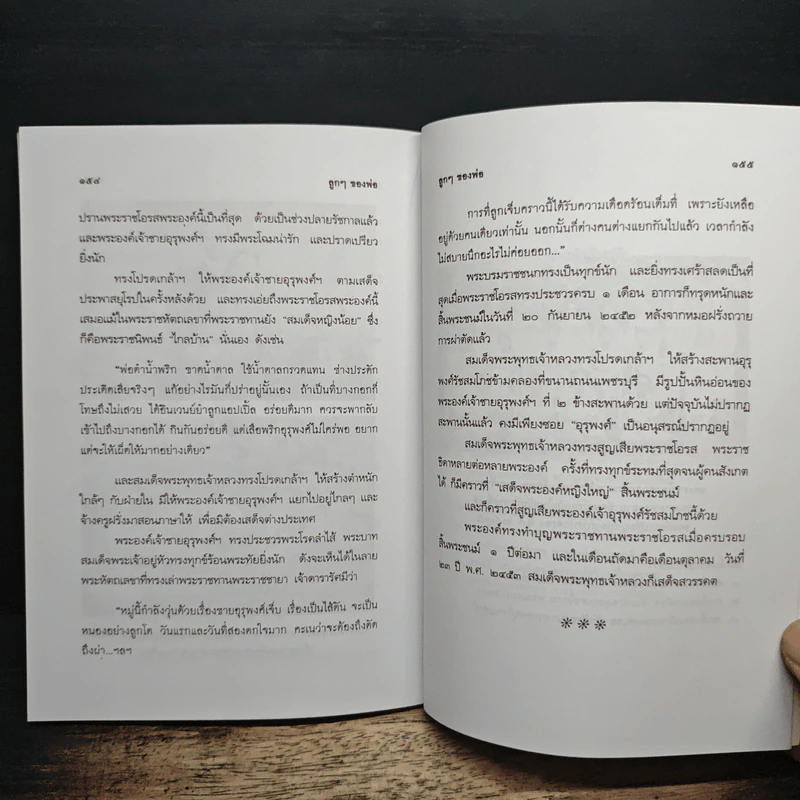 ๑๕๔ ลูกๆ ของพ่อ
ปรานพระราชโอรสพระองค์นี้เป็นที่สุด ด้วยเป็นช่วงปลายรัชกาลแล้ว
และพระองค์เจ้าชายอุรุพงศ์ฯ ทรงมีพระโฉมน่ารัก และปราดเปรียว
ยิ่งนัก
ทรงโปรดเกล้าฯ ให้พระองค์เจ้าชายอุรุพงศ์ฯ ตามเสด็จ
ประพาสยุโรปในครั้งหลังด้วย และทรงเอ่ยถึงพระราชโอรสพระองค์นี้
เสมอแม้ในพระราชหัตถเลขาที่พระราชทานยัง "สมเด็จหญิงน้อย" ซึ่ง
ก็คือพระราชนิพนธ์ "ไกลบ้าน" นั่นเอง ดังเช่น
"พ่อตำน้ำพริก ขาดน้ำตาล ใช้น้ำตาลกรวดแทน ช่างประดัก
ประเดิดเสียจริงๆ แก้อย่างไรมันก็ปร่าอยู่นั้นเอง ถ้าเป็นที่บางกอกก็
โทษถึงไม่เสวย ได้ชินเวนย์บ้าลูกแอปเปิ้ล อร่อยดีมาก ควรจะพากลับ
เข้าไปถึงบางกอกได้ กินกันอร่อยดี แต่เสือพริกอุรุพงศ์ไม่ใคร่พอ อยาก
แต่จะให้เผ็ดให้มากอย่างเดียว"
และสมเด็จพระพุทธเจ้าหลวงทรงโปรดเกล้าฯ ให้สร้างตำหนัก
ใกล้ๆ กับฝ่ายใน มีให้พระองค์เจ้าชายอุรุพงศ์ฯ แยกไปอยู่ไกลๆ และ
จ้างครูฝรั่งมาสอนภาษาให้ เพื่อมิต้องเสด็จต่างประเทศ
พระองค์เจ้าชายอุรุพงศ์ฯ ทรงประชวรพระโรคลำไส้ พระบาท
สมเด็จพระเจ้าอยู่หัวทรงทุกข์ร้อนพระทัยยิ่งนัก ดังจะเห็นได้ในลาย
พระหัตถเลขาที่ทรงเล่าพระราชทานพระราชชายา เจ้าดารารัศมีว่า
"หมู่นี้กำลังวุ่นด้วยเรื่องชายอุรุพงศ์เจ็บ เรื่องเป็นไส้ตัน จะเป็น
หนองอย่างลูกโต วันแรกและวันที่สองตกใจมาก คะเนว่าจะต้องถึงตัด
ถึงผ่า...ฯลฯ
ลูกๆ ของพ่อ ๑๕๕
การที่ลูกเจ็บคราวนี้ได้รับความเดือดร้อนเต็มที่ เพราะยังเหลือ
อยู่ด้วยคนเดียวเท่านั้น นอกนั้นก็ต่างคนต่างแยกกันไปแล้ว เวลากำลัง
ไม่สบายนึกอะไรไม่ค่อยออก..."
พระบรมราชชนกทรงเป็นทุกข์นัก และยิ่งทรงเศร้าสลดเป็นที่
สุดเมื่อพระราชโอรสทรงประชวรครบ ๑ เดือน อาการก็ทรุดหนักและ
สิ้นพระชนม์ในวันที่ ๒๐ กันยายน ๒๔๕๒ หลังจากหมอฝรั่งถวาย
การผ่าตัดแล้ว
สมเด็จพระพุทธเจ้าหลวงทรงโปรดเกล้าฯ ให้สร้างสะพานอุรุ
พงศ์รัชสมโภชข้ามคลองที่ขนานถนนเพชรบุรี มีรูปปั้นหินอ่อนของ
พระองค์เจ้าชายอุรุพงศ์ฯ ที่ ๒ ข้างสะพานด้วย แต่ปัจจุบันไม่ปรากฏ
สะพานนั้นแล้ว คงมีเพียงซอย "อุรุพงศ์" เป็นอนุสรณ์ปรากฏอยู่
สมเด็จพระพุทธเจ้าหลวงทรงสูญเสียพระราชโอรส พระราช
ธิดาหลายต่อหลายพระองค์ ครั้งที่ทรงทุกข์ระทมที่สุดจนผู้คนสังเกต
ได้ ก็มีคราวที่ "เสด็จพระองค์หญิงใหญ่" สิ้นพระชนม์
และก็คราวที่สูญเสียพระองค์เจ้าอุรุพงศ์รัชสมโภชนี้ด้วย
พระองค์ทรงทำบุญพระราชทานพระราชโอรสเมื่อครบรอบ
สิ้นพระชนม์ ๑ ปีต่อมา และในเดือนถัดมาคือเดือนตุลาคม วันที่
๒๓ ปี พ.ศ. ๒๔๕๓ สมเด็จพระพุทธเจ้าหลวงก็เสด็จสวรรคต
❊ ❊ ❊